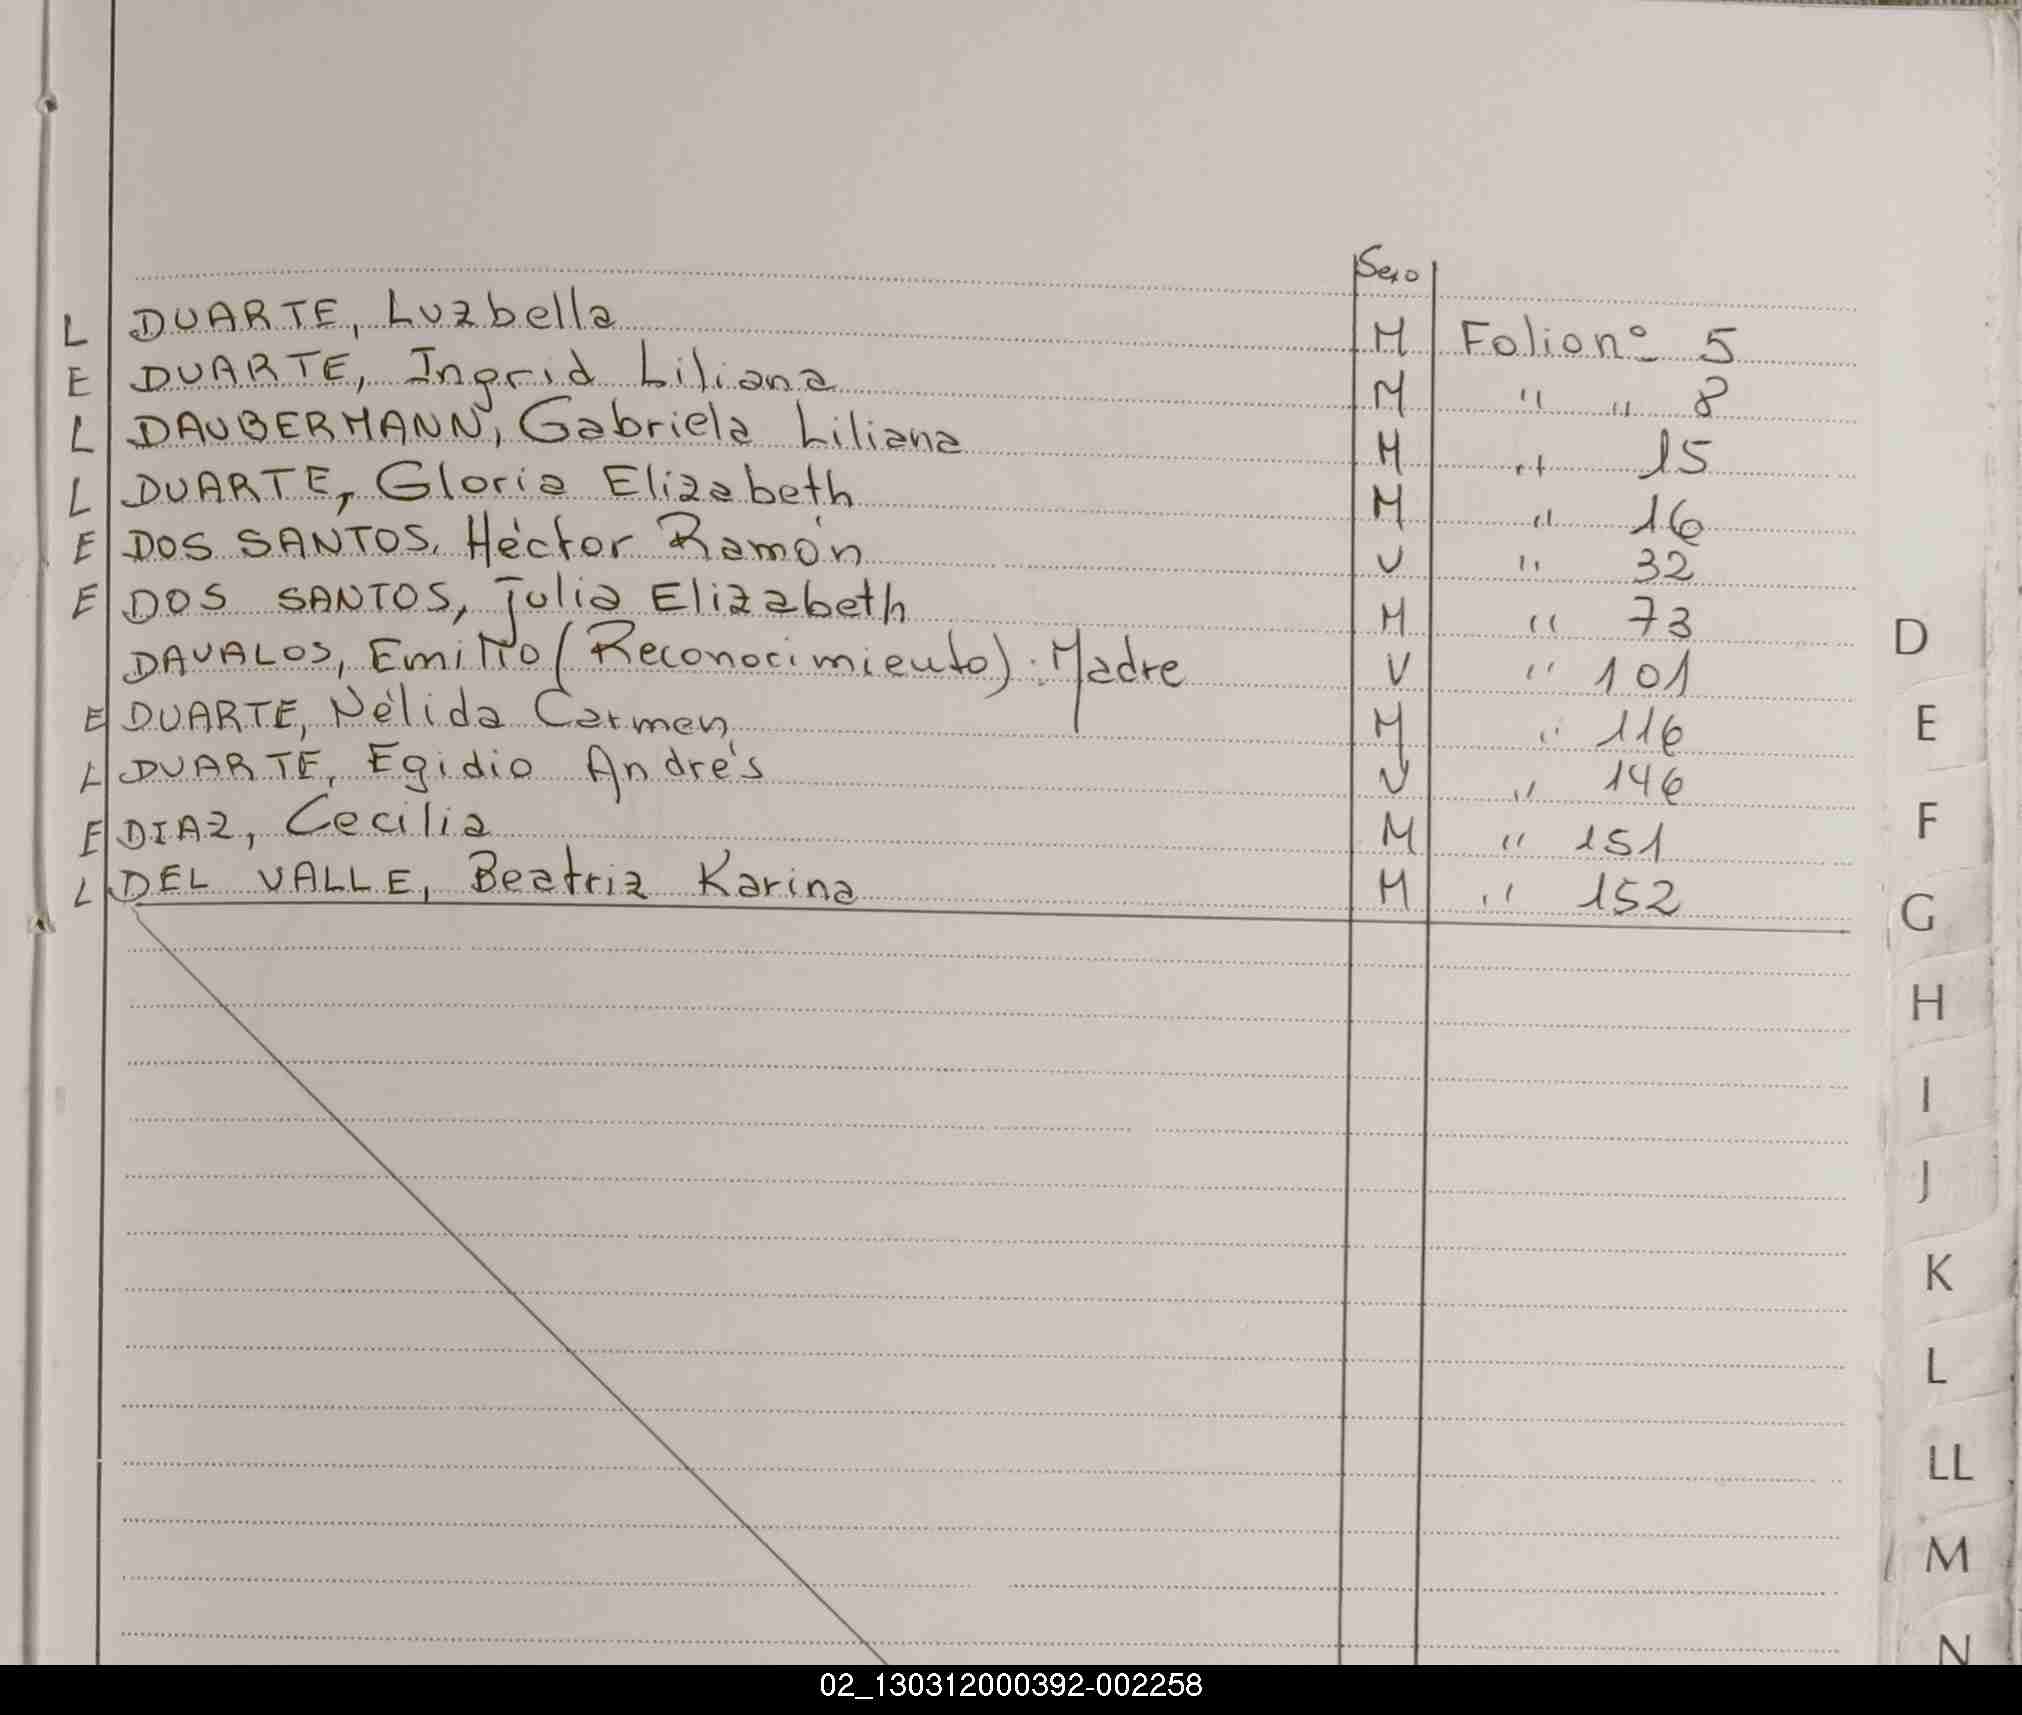 Sexo
L DUARTE, Luzbella M Folio nº 5
E DUARTE, Ingrid Liliana M " " 8
L DAUBERMANN, Gabriela Liliana M " 15
L DUARTE, Gloria Elizabeth M " 16
E DOS SANTOS, Héctor Ramón V " 32
E DOS SANTOS, Julia Elizabeth M " 73
DAVALOS, Emilio (Reconocimiento): Madre V " 101
E DUARTE, Nélida Carmen M " 116
L DUARTE, Egidio Andrés V " 146
E DIAZ, Cecilia M " 151
L DEL VALLE, Beatriz Karina M " 152
D
E
F
G
H
I
J
K
L
LL
M
N
02_130312000392-002258